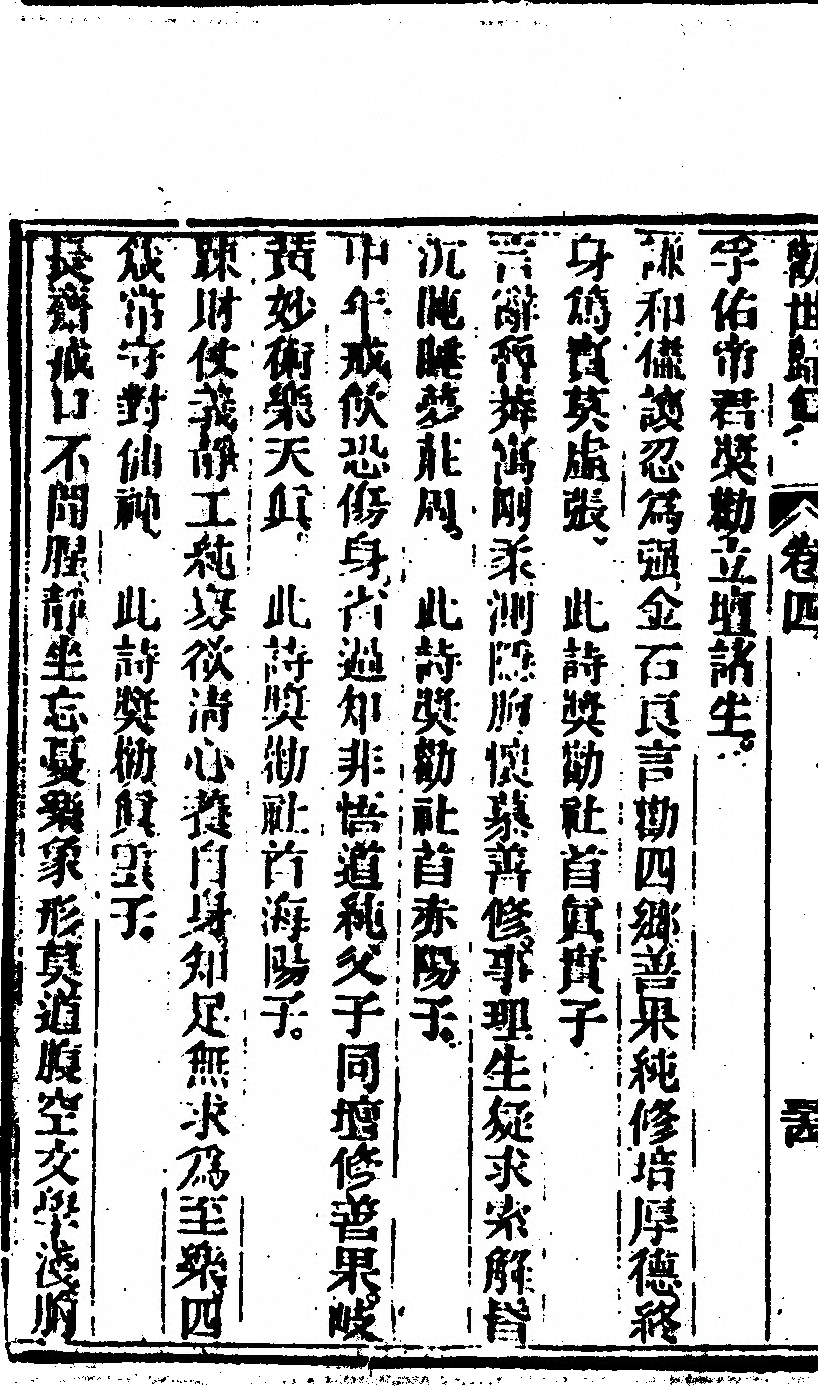 勸世歸真 卷四
孚佑帝君奬勸立壇諸生。
謙和儘讓忍為強金石良言勸四鄉善果純修培厚德終
身為寶莫虛張、 此詩奬勸社首真實子
言辭 寓剛柔測隱胸懷慕善修事理生疑求索解昔
沉 睡夢莊周。 此詩奬勸社首赤陽子。
中年戒飲恐傷身省過知非悟道純父子同壇修善果岐
黃妙術樂天真。 此詩奬勸社首海陽子。
踈財仗義靜工純寡欲清心養自身知足無求為至樂四
 常守對仙神、 此詩奬勸真 子。
長齋戒口不聞腥靜坐忘憂樂象形莫道腹空文學淺胸